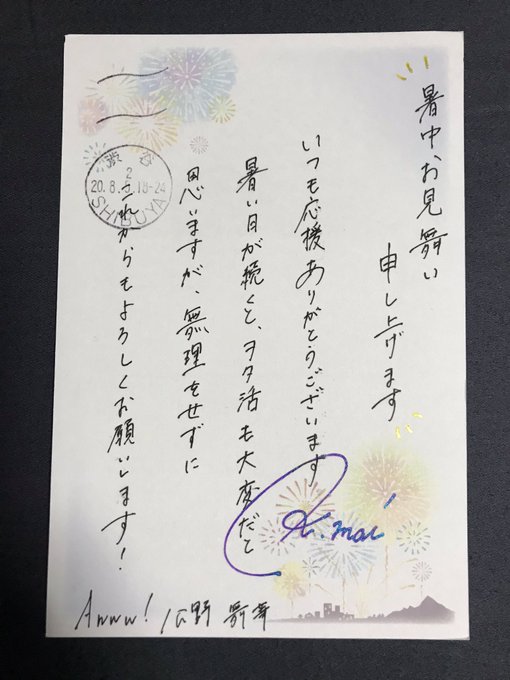 暑中お見舞い
申し上げます
いつも応援ありがとうございます
暑い日が続くと、ヲタ活も大変だと
思いますが、無理をせずに
これからもよろしくお願いします！
K.mai
Awww! 公野 舞華
渋谷
2
18-24
SHIBUYA